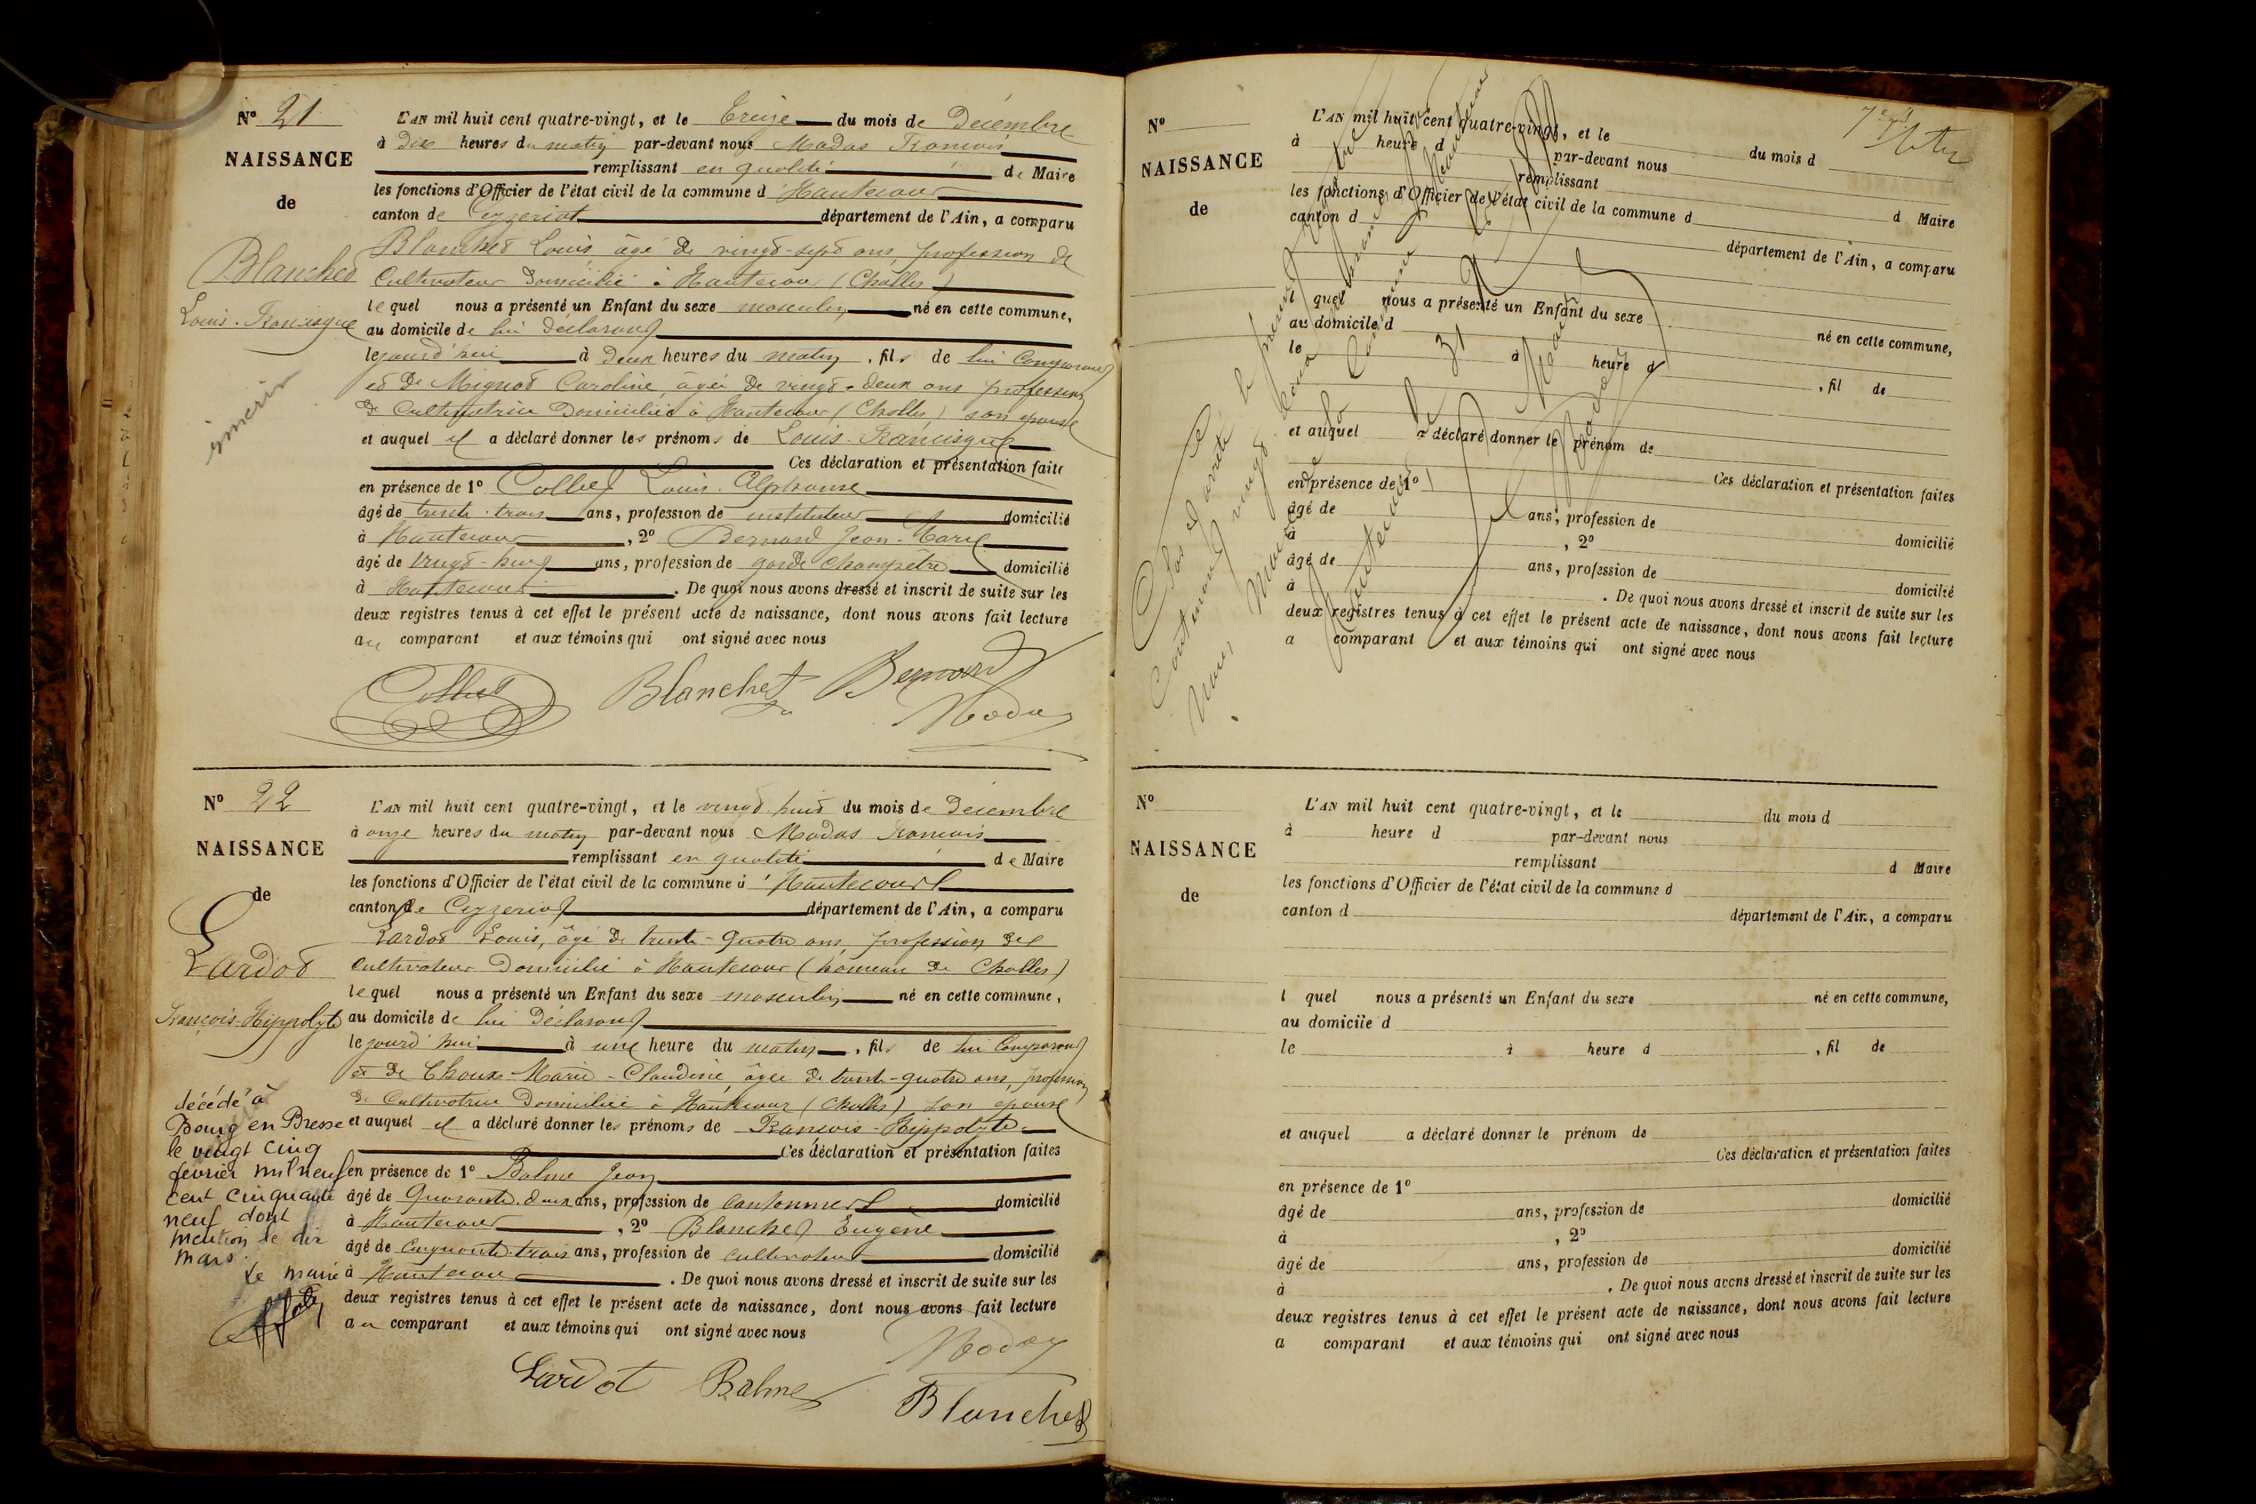 N° 21
NAISSANCE
de
Blanchet
Louis-Francisque
L'AN mil huit cent quatre-vingt, et le treize du mois de Décembre
à Dix heures du matin par-devant nous Modas François
remplissant en qualité de Maire
les fonctions d'Officier de l'état civil de la commune d'Hautecour
canton de Ceyzeriat département de l'Ain, a comparu
Blanchet Louis, âgé de vingt-sept ans, profession de
Cultivateur Domicilié à Hautecour (Cholles)
lequel nous a présenté un Enfant du sexe masculin né en cette commune,
au domicile de lui déclarant
le jourd'hui à Deux heures du matin, fils de lui Comparant
et de Mignot Caroline, âgée de vingt-deux ans profession
de Cultivatrice Domiciliée à Hautecour (Cholles) son épouse
et auquel il a déclaré donner les prénoms de Louis-Francisque
Ces déclaration et présentation faites
en présence de 1° Collet Louis-Alphonse
âgé de trente-trois ans, profession de instituteur domicilié
à Hautecour, 2° Bernard Jean-Marie
âgé de ans, profession de garde Champêtre domicilié
à Hautecour. De quoi nous avons dressé et inscrit de suite sur les
deux registres tenus à cet effet le présent acte de naissance, dont nous avons fait lecture
au comparant et aux témoins qui ont signé avec nous
Collet Blanchet Bernard
Modas
N° 22
NAISSANCE
de
Lardot
François-Hippolyte
L'AN mil huit cent quatre-vingt, et le vingt huit du mois de Décembre
à onze heures du matin par-devant nous Modas François
remplissant en qualité de Maire
les fonctions d'Officier de l'état civil de la commune d'Hautecourt
canton de Ceyzeriat département de l'Ain, a comparu
Lardot Louis, âgé de trente-quatre ans, profession de
cultivateur Domicilié à Hautecour (hameau de Cholles)
lequel nous a présenté un Enfant du sexe masculin né en cette commune,
au domicile de lui Déclarant
le jourd'hui à une heure du matin, fils de lui Comparant
et de Choux-Marie-Claudine, âgée de trente-quatre ans, profession
de Cultivatrice Domiciliée à Hautecour (Cholles) son épouse
et auquel il a déclaré donner les prénoms de François-Hippolyte
Ces déclaration et présentation faites
en présence de 1° Balme Jean
âgé de Quarante-deux ans, profession de cantonnier domicilié
à Hautecour, 2° Blanchet Eugène
âgé de Cinquante-trois ans, profession de cultivateur domicilié
à Hautecour. De quoi nous avons dressé et inscrit de suite sur les
deux registres tenus à cet effet le présent acte de naissance, dont nous avons fait lecture
au comparant et aux témoins qui ont signé avec nous
Modas
Lardot Balme
Blanchet
décédé à
Bourg en Bresse
le vingt cinq
février mil neuf
cent cinquante
neuf dont
mention le dix
mars.
Le maire
N°
NAISSANCE
de
L'AN mil huit cent quatre-vingt, et le du mois d
à heure d par-devant nous
remplissant d Maire
les fonctions d'Officier de l'état civil de la commune d
canton d département de l'Ain, a comparu
l quel nous a présenté un Enfant du sexe né en cette commune,
au domicile d
le à heure d , fil de
et auquel a déclaré donner le prénom de
Ces déclaration et présentation faites
en présence de 1°
âgé de ans, profession de domicilié
à , 2°
âgé de ans, profession de domicilié
à . De quoi nous avons dressé et inscrit de suite sur les
deux registres tenus à cet effet le présent acte de naissance, dont nous avons fait lecture
a comparant et aux témoins qui ont signé avec nous
Clos et arrêté le présent
Contenant vingt deux
N°
NAISSANCE
de
L'AN mil huit cent quatre-vingt, et le du mois d
à heure d par-devant nous
remplissant d Maire
les fonctions d'Officier de l'état civil de la commune d
canton d département de l'Ain, a comparu
l quel nous a présenté un Enfant du sexe né en cette commune,
au domicile d
le à heure d , fil de
et auquel a déclaré donner le prénom de
Ces déclaration et présentation faites
en présence de 1°
âgé de ans, profession de domicilié
à , 2°
âgé de ans, profession de domicilié
à . De quoi nous avons dressé et inscrit de suite sur les
deux registres tenus à cet effet le présent acte de naissance, dont nous avons fait lecture
a comparant et aux témoins qui ont signé avec nous